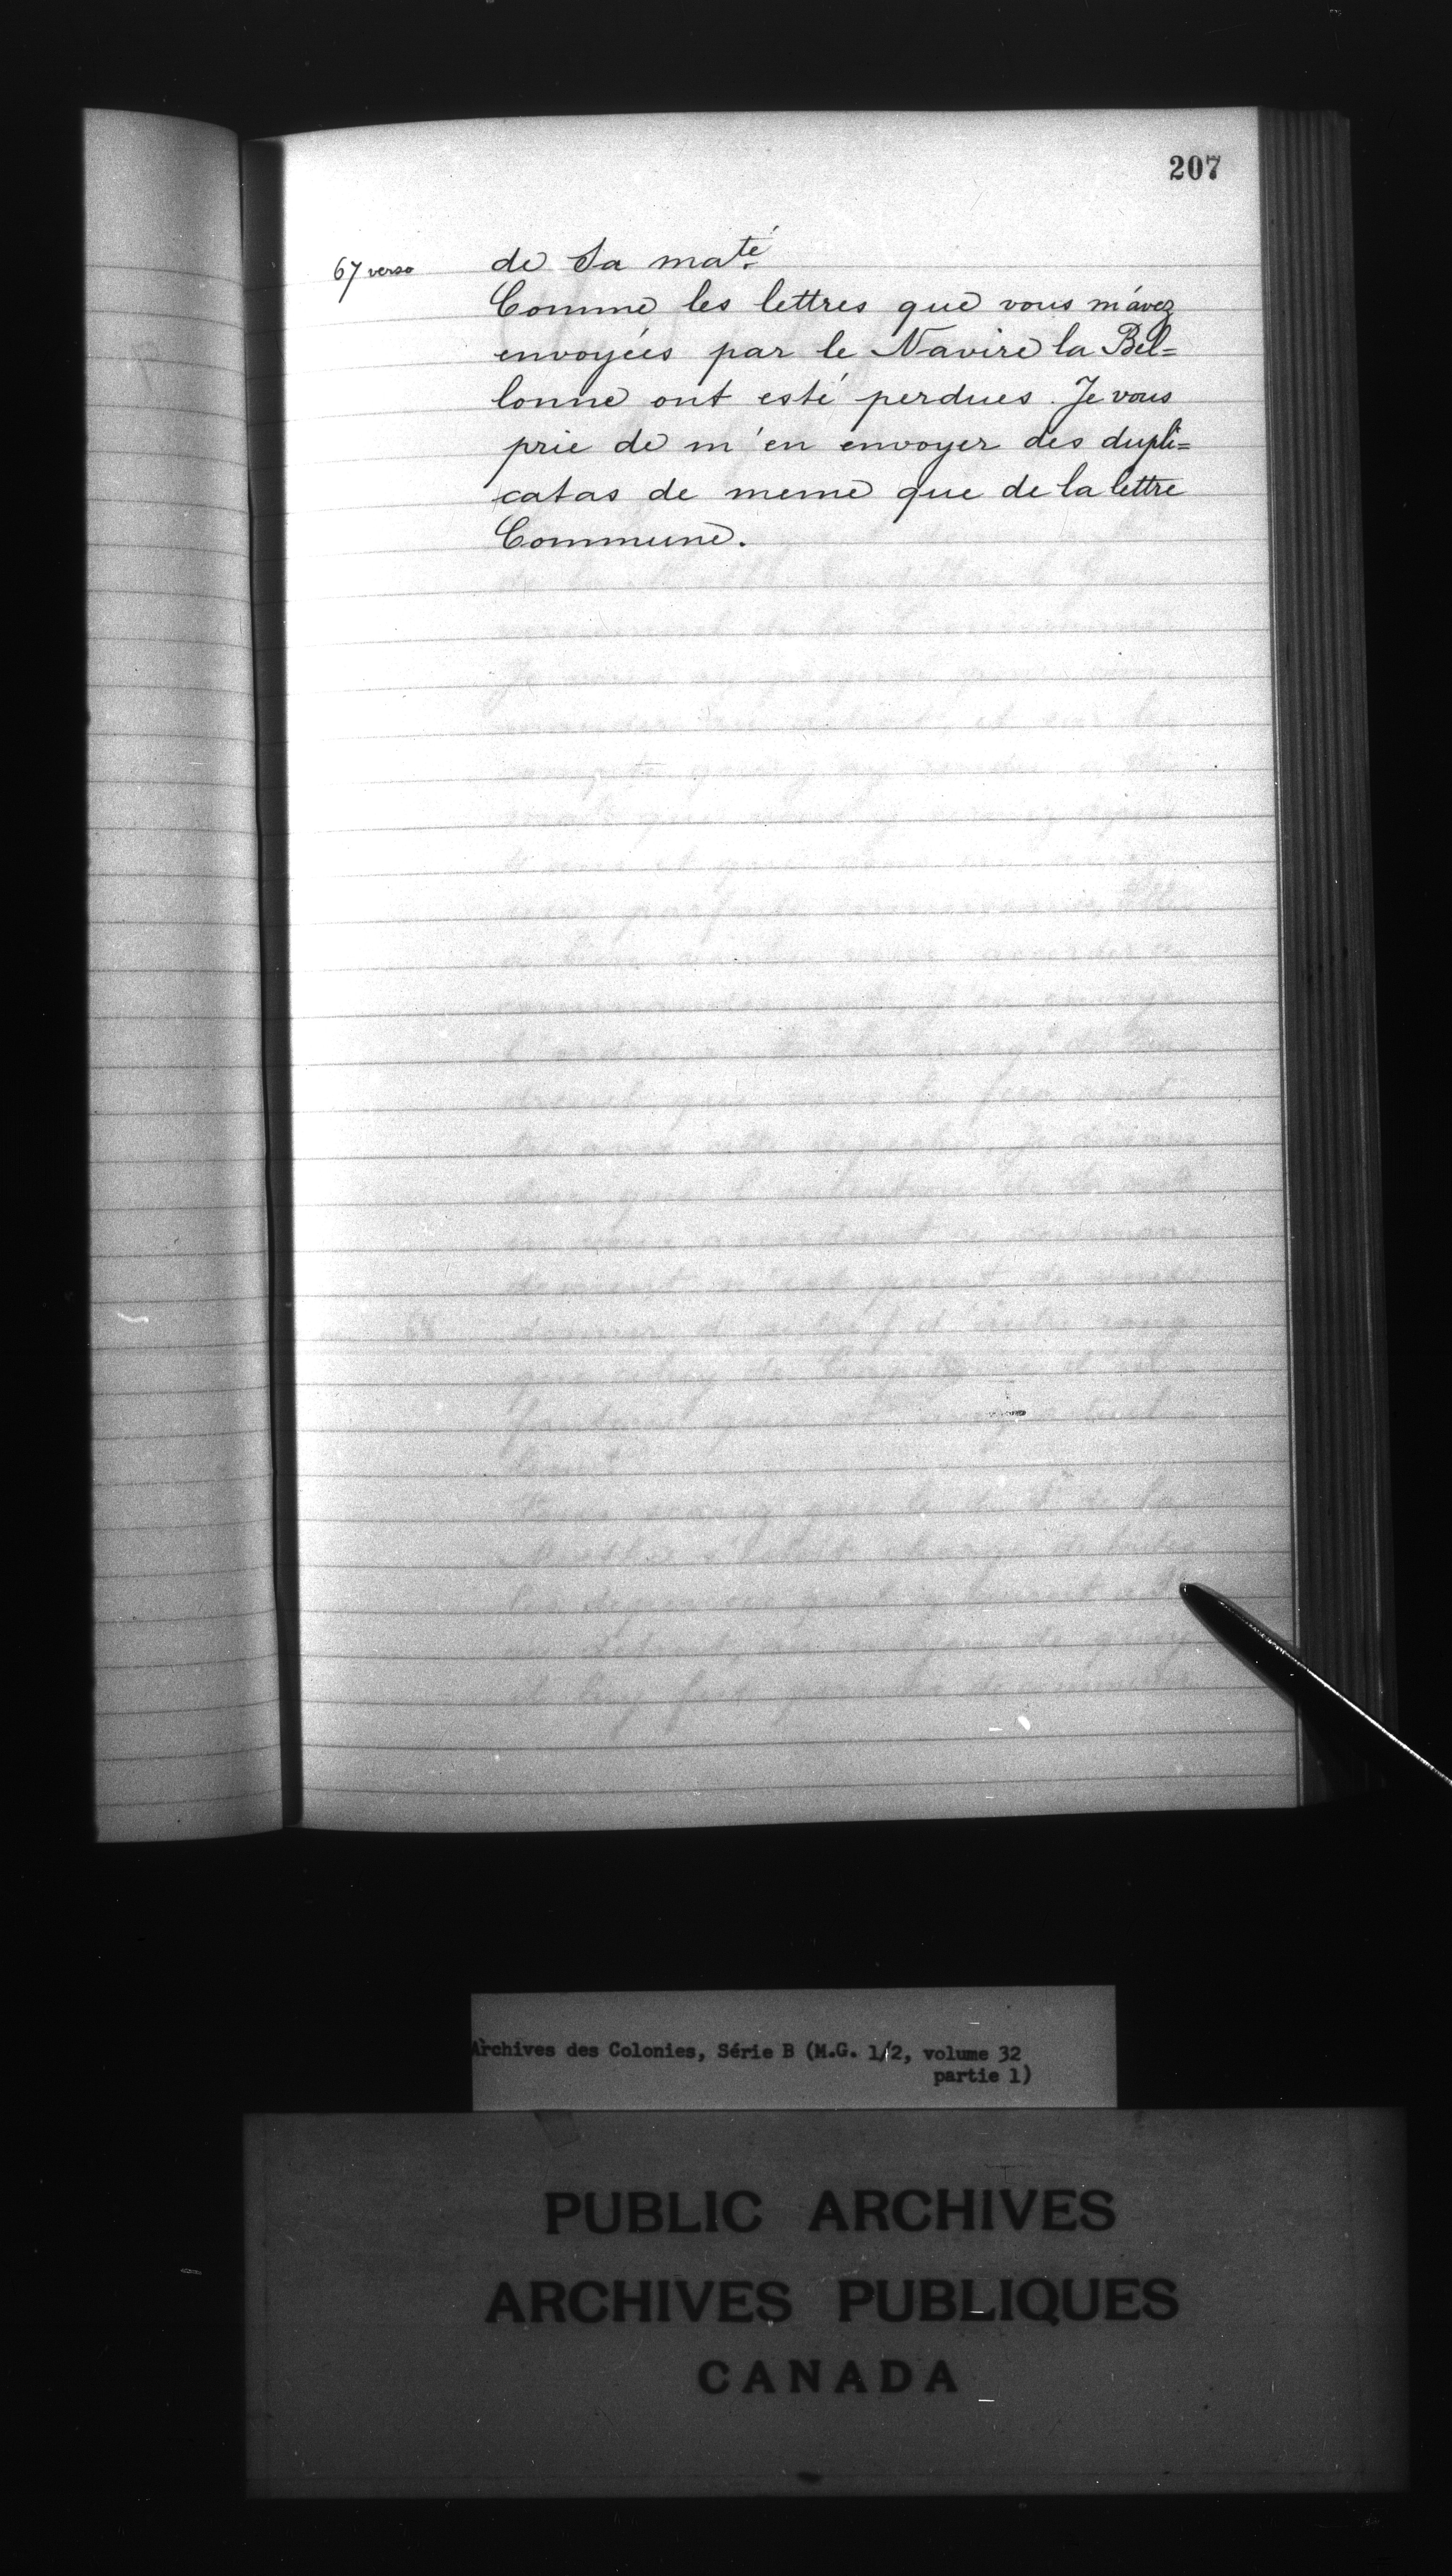 207
67 verso
de Sa maté
Comme les lettres que vous m'avez
envoyées par le Navire la Bel=
lonne ont esté perdues. Je vous
prie de m'en envoyer des dupli=
catas de meme que de la lettre
Commune.
Archives des Colonies, Série B (M.G. 1/2, volume 32
partie 1)
PUBLIC ARCHIVES
ARCHIVES PUBLIQUES
CANADA